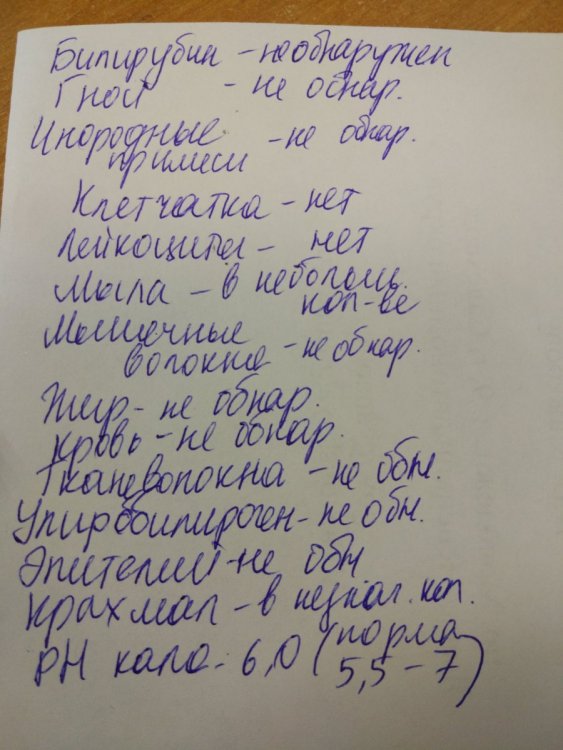 Билирубин - не обнаружен
Гной - не обнар.
Инородные - не обнар.
примеси
Клетчатка - нет
Лейкоциты - нет
Мыла - в небольш.
кол-ве
Мышечные
волокна - не обнар.
Жир - не обнар.
кровь - не обнар.
Тканеволокна - не обн.
Уилробилироген - не обн.
Эпителий - не обн
Крахмал - в незнач. кол.
pH кала - 6,0 (норма
5,5 - 7)